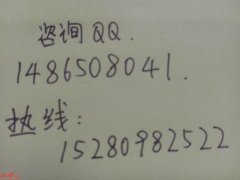 咨询QQ.
1486508041.
热线：
15280982522